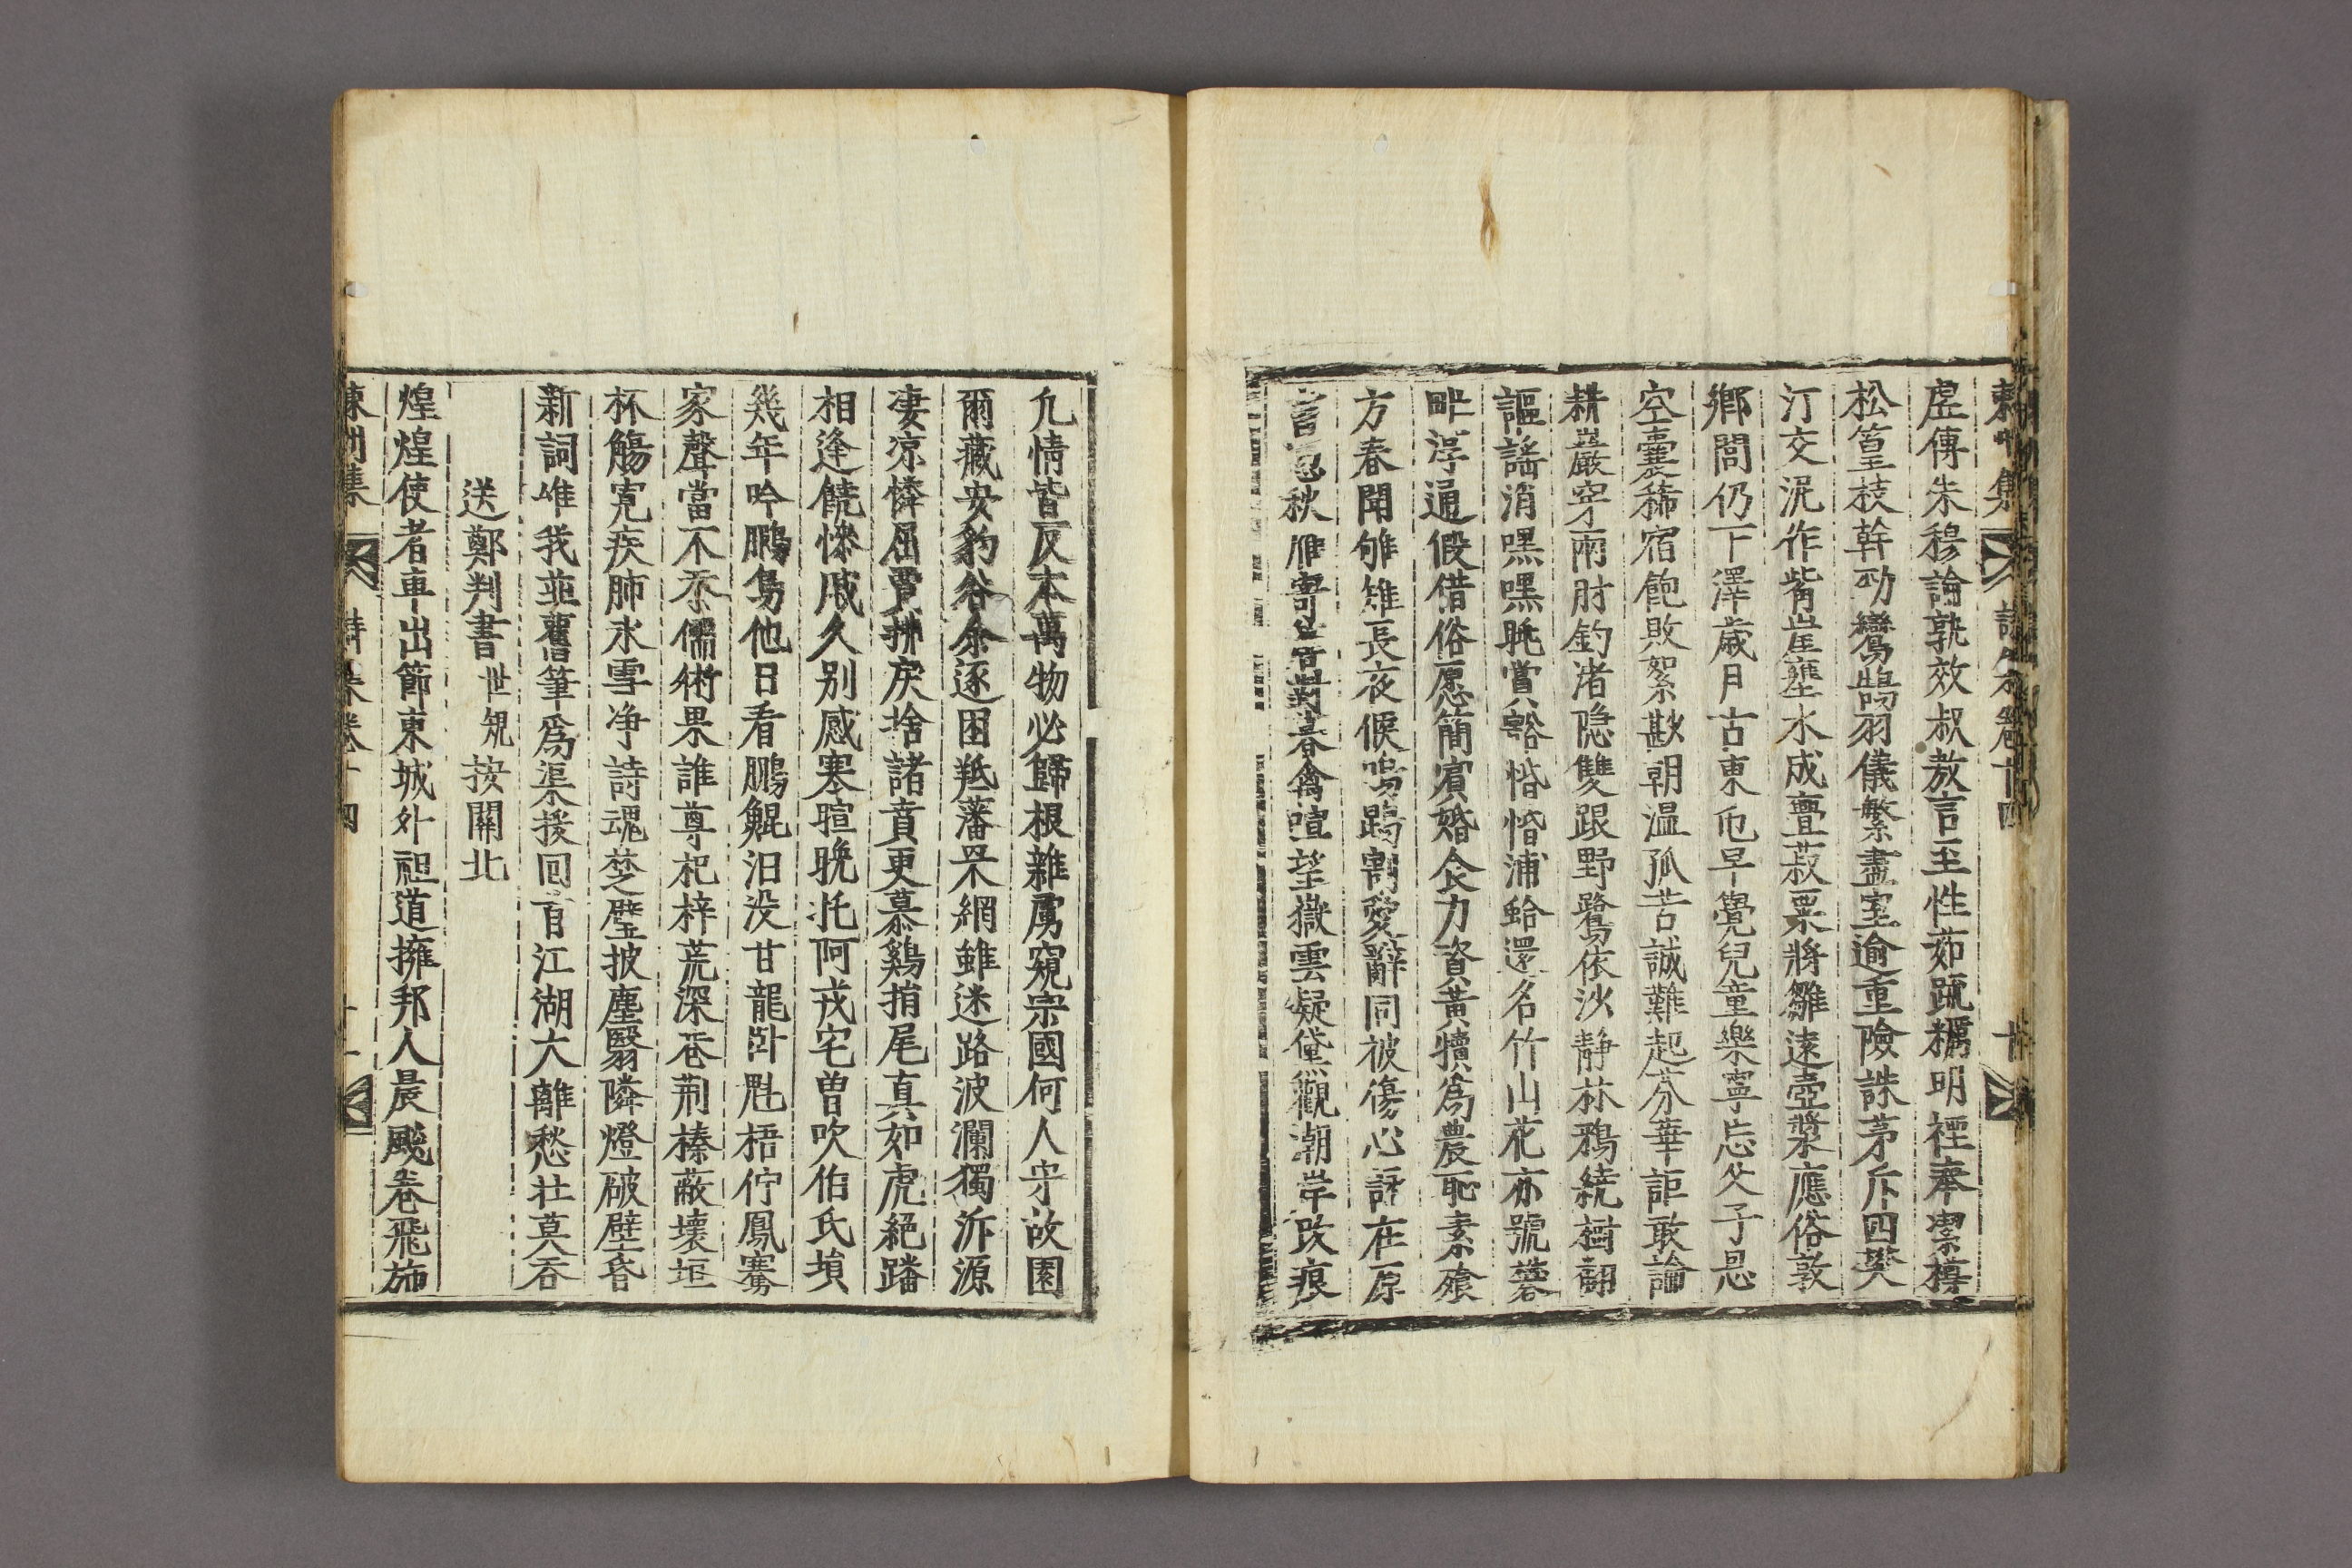 虛傳朱穆論孰效叔敖言至性茹蔬糲明禋奉潔樽
松篁枝幹勁鸞鵠羽儀繁盡室逾重險誅茅斥四樊
汀交泥作觜崖壅水成亹菽粟將雛遠壺漿應俗敦
鄕閭仍下澤歲月古東屯早覺兒童樂寧忘父子恩
空囊稀宿飽敗絮歎朝温孤苦誠難起芬華詎敢論
耕巖穿兩肘釣渚隐雙跟野鷺依沙静林鴉繞樹翻
謳謠消嘿嘿眺賞豁惛惛浦蛤還名竹山花亦號蓉
畔浮通假借俗愿簡賓婚食力資黃犢爲農恥素飱
方春聞雊雉長夜偎鳴鶤割愛辭同被傷心詠在原
秋雁寄 對暮禽喧望嶽雲凝黛觀潮岸改痕
凢情皆反本萬物必歸根雜虜窺宗國何人守故園
爾藏安豹谷余逐困羝藩罘網雖迷路波瀾獨泝源
凄凉憐屈賈拂戾捨諸賁更慕鷄捎尾真如虎絕蹯
相逢饒慘戚久别感寒暄晩托阿戎宅曾吹伯氏塤
幾年吟鵩鳥他日看鵬鯤汩没甘龍卧鬽梧佇鳳騫
家聲當不忝儒術果誰尊杞梓荒深巷荆榛蔽壊垣
杯觴寛疾肺氷雪净詩魂楚璧披塵翳隣燈破壁昏
新詞唯我並舊筆爲渠援回首江湖大離愁壮莫吞
送鄭判書世規按關北
煌煌使者車出節東城外祖道擁邦人晨颷卷飛斾
東州集 詩集卷十四